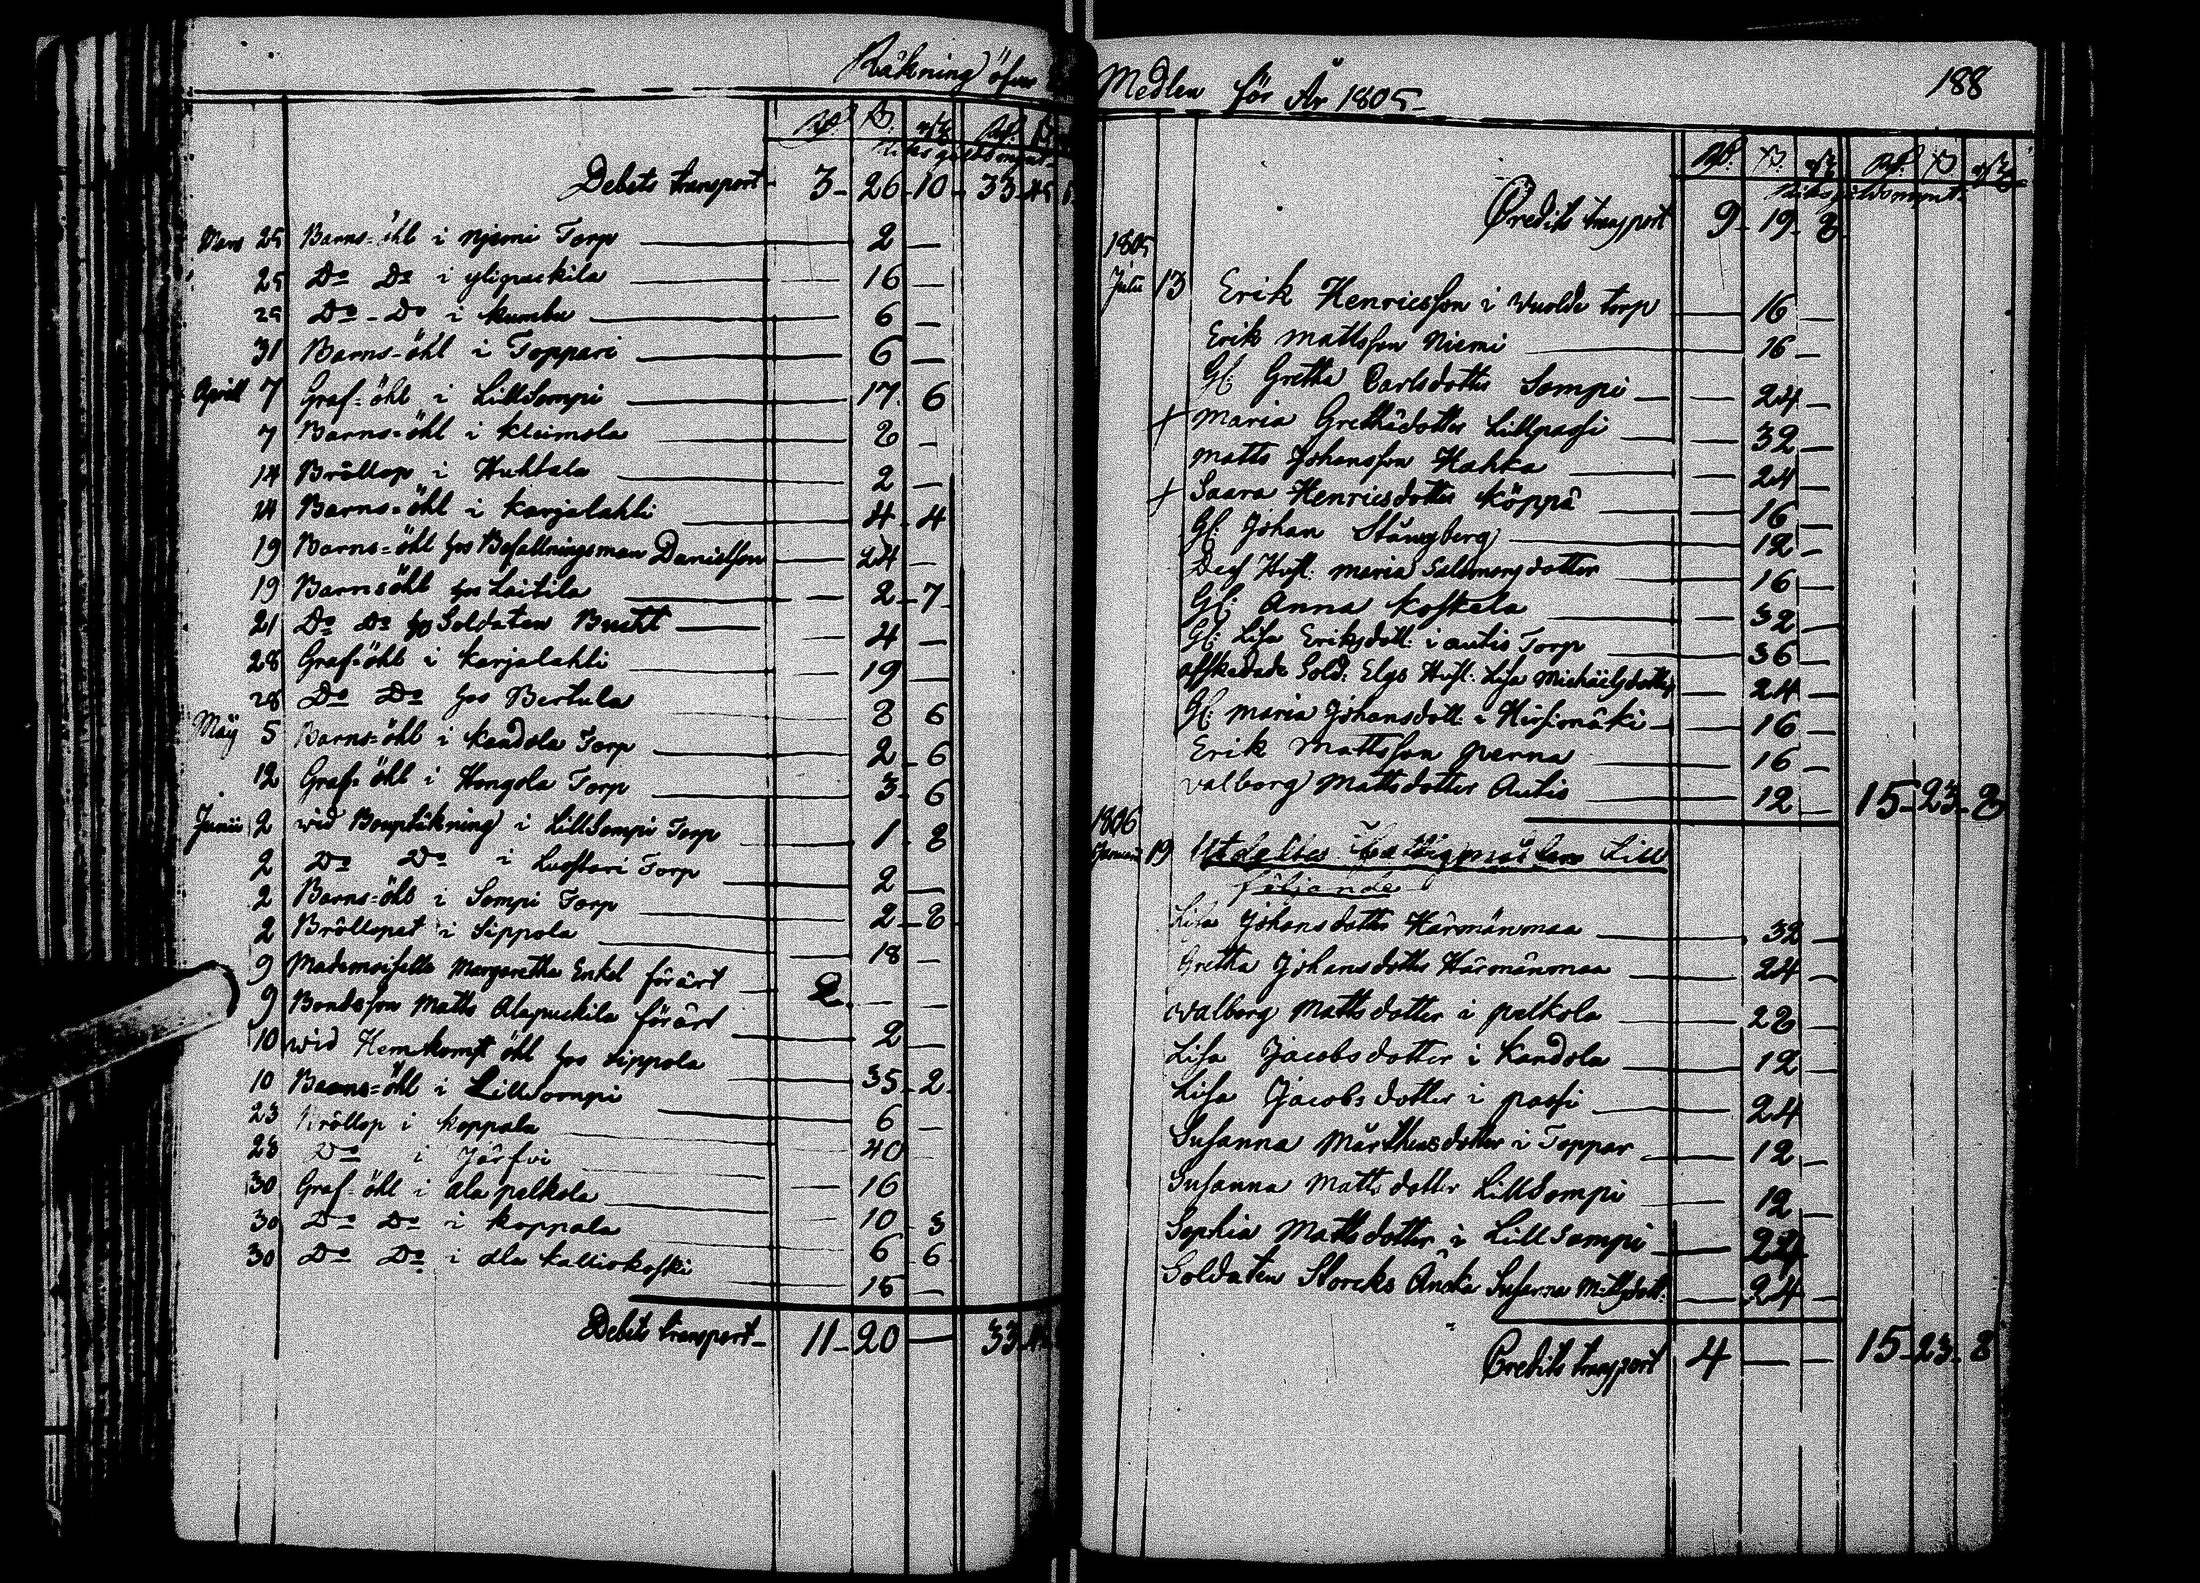 Räkning öfver
Rd. ß. rst. Rd. ß.
Riksgäldsmynt.
Debets transport 3 - 26 - 10 - 33 - 45
Mars 25 Barns-öhl i Njemi Torp 2 —
25 Do Do i ylipuskila 16 —
25 Do - Do i Kumbu 6 —
31 Barns-öhl i Toppari 6 —
Aprill 7 Graf-öhl i LillSompi 17. 6
7 Barns-öhl i Kleimola 8 -
14 Bröllop i Huhtala 2 —
14 Barns-öhl i Karjalahti 4 - 4
19 Barns-öhl hos Befallningsman Danielsson 24 —
19 Barnsöhl hos Laitila 2 - 7
21 Do Do hos Soldaten Buckt 4 —
28 Graf-öhl i Karjalahti 19 —
28 Do Do hos Bertula 8 6
Maij 5 Barns-öhl i Kandola Torp 2 - 6
12 Graf-öhl i Hongola Torp 3 - 6
Junii 2 wid Bouptäkning i LillSompi Torp 1 - 8
2 Do Do i Luostari Torp 2 —
2 Barns-öhl i Sompi Torp 2 - 8
2 Bröllopet i Sippola 18 —
9 Mademoiselle Margaretha Enkel förärt 2. — —
9 Bondesson Matts Alapuskila förärt 2 —
10 wid Hemkomst öhl hos Sippola 35 - 2
10 Barns-öhl i LillSompi 6 —
23 Bröllop i Koppala 40
23 Do i Järfvi 16
30 Graf-öhl i ala pelkola 10 - 3
30 Do Do i Koppala 6 - 6
30 Do Do i ala Kalliokoski 15 —
Debets transport 11 - 20 — 33
Medlen för År 1805 188
Rd. ß. rst. Rd. ß. rst.
Riksgäldsmynt.
Credits transport 9 - 19 - 8
1805
Julii 13 Erik Henricsson i Wuolde torp 16 —
Erik Mattsson Niemi 16 —
Gl: Gretha Carlsdotter Sompi 24 —
+ Maria Grethâdotter Lillpassi 32 —
Matts Johansson Hahka 24 —
+ Saara Henricsdotter Köppä 16 —
Gl: Johan Stångberg 12 —
Dess Hust: Maria Salomonsdotter 16 —
Gl: Anna Koskela 32 —
Gl: Lisa Eriksdott: i autis Torp 36 —
afskedade Sold: Elgs Hust: Lisa Michäelsdotter 24 —
Gl: Maria Johansdott: i Hirsimäki 16 —
Erik Mattsson perna 16 —
Valborg Mattsdotter Autis 12 — 15 - 23 - 8
1806
Januarii 19 Utdeltes Fattigmedlen till
följande
Lisa Johansdotter Härmänmaa 32 —
Gretha Johansdotter Härmänmaa 24 —
Walborg Mattsdotter i pelkola 28 —
Lisa Jacobsdotter i Kandola 12 —
Lisa Jacobsdotter i passi 24
Susanna Mårthensdotter i Toppar 12 —
Susanna Mattsdotter LillSompi 12 —
Sophia Mattsdotter i LillSompi
Soldaten Storcks Äncka Susanna Mattsdott: 24 —
Credits transport 4 — — 15 - 23 - 8